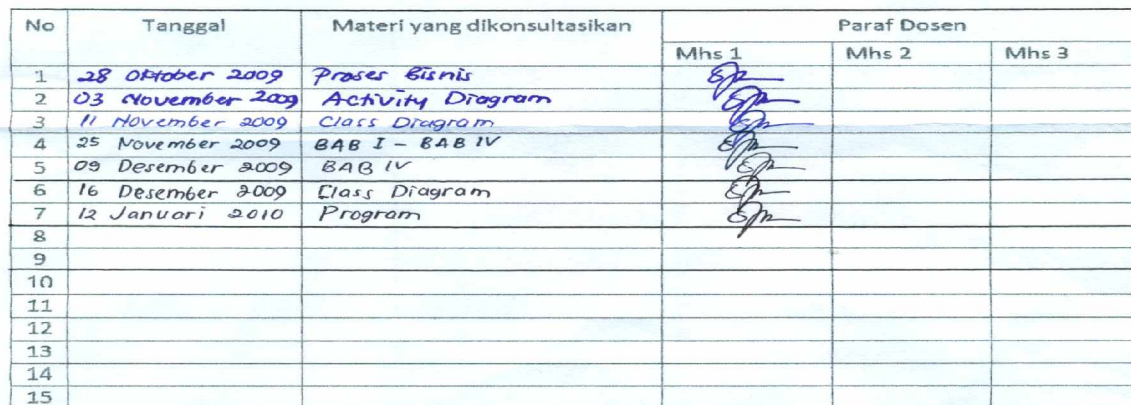 No Tanggal Materi yang dikonsultasikan Paraf Dosen
Mhs 1 Mhs 2 Mhs 3
1 28 Oktober 2009 Proses Bisnis
2 03 November 2009 Activity Diagram
3 11 November 2009 Class Diagram
4 25 November 2009 BAB I - BAB IV
5 09 Desember 2009 BAB IV
6 16 Desember 2009 Class Diagram
7 12 Januari 2010 Program
8
9
10
11
12
13
14
15